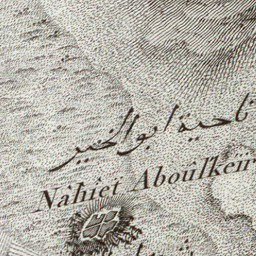 ناحية ابو الخير
Nâhiet Aboûlkeïr